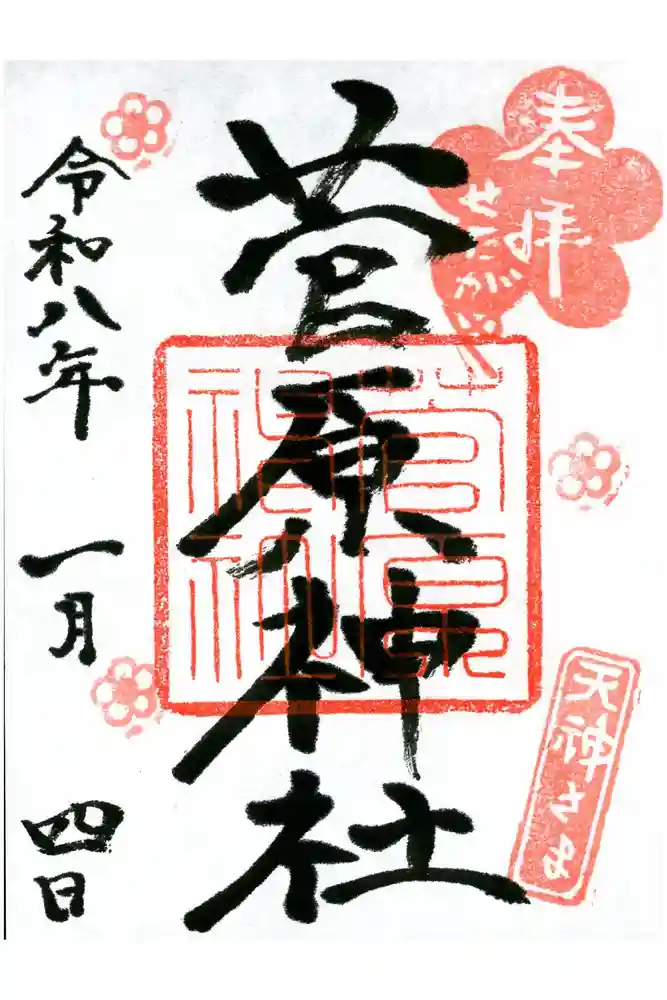 奉拝
菅原神社
菅原神社
天神さま
令和八年 一月 四日